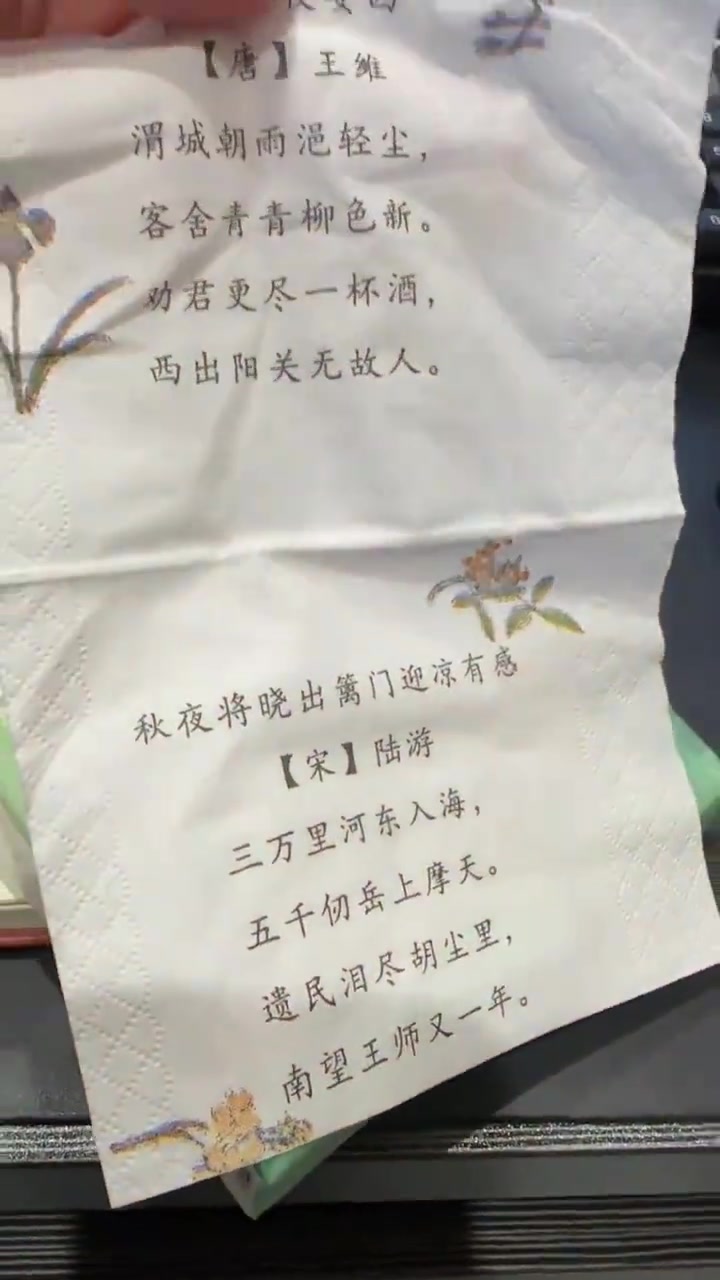 【唐】王维
渭城朝雨浥轻尘，
客舍青青柳色新。
劝君更尽一杯酒，
西出阳关无故人。
秋夜将晓出篱门迎凉有感
【宋】陆游
三万里河东入海，
五千仞岳上摩天。
遗民泪尽胡尘里，
南望王师又一年。